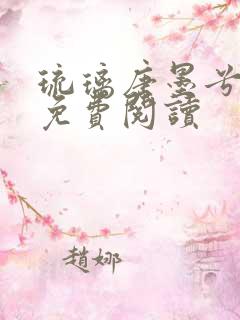 琉璃唐墨兮
免費閱讀
趙娜